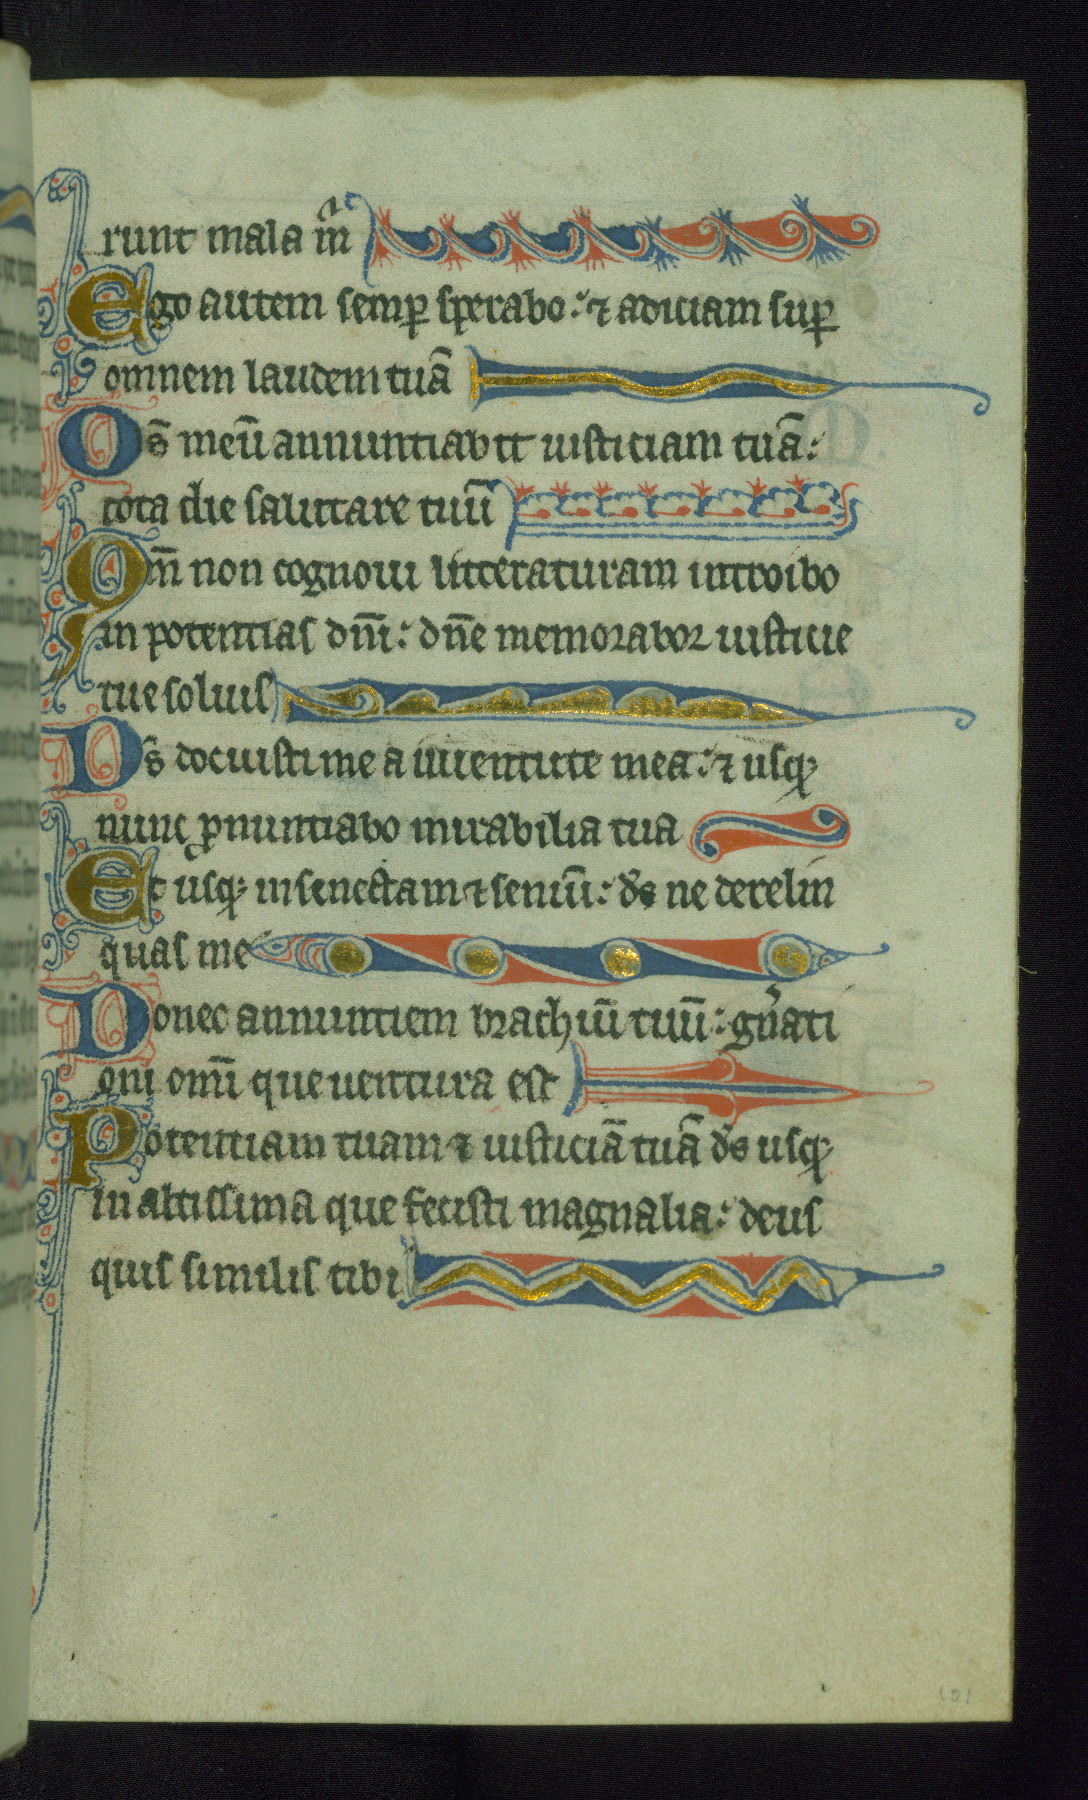 runt mala m̃
Ego autem semꝑ sꝑerabo: ⁊ adiciam suꝑ
omnem laudem tuã
Os̃ meũ annuntiabit iusticiam tuã:
tota die salutare tuũ
Qm̃ non cognoui litteraturam introibo
in potentias dñi: dñe memorabor iusticie
tue solius
Ds̃ docuisti me a iuuentute mea: ⁊ usqꝫ
nunc ꝓnuntiabo mirabilia tua
Et usqꝫ in senectam ⁊ seniũ: ds̃ ne derelin
quas me
Donec annuntiem brachiũ tuũ: gñati
oni omĩ que uentura est
Potentiam tuam ⁊ iusticiã tuã ds̃ usqꝫ
in altissima que fecisti magnalia: deus
quis similis tibi